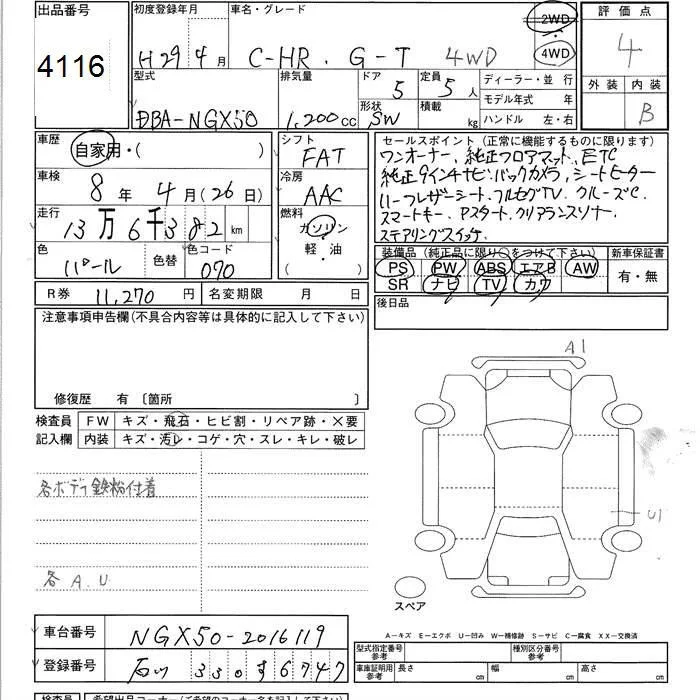 出品番号
4116
初度登録年月
H29年4月
車名・グレード
C-HR. G-T 4WD
2WD
・
4WD
評価点
4
外装 内装
B
型式
DBA-NGX50
排気量
1,200cc
ドア
5
定員
5人
形状
SW
積載
kg
ディーラー・並 行
モデル年式 年
ハンドル 左・右
車歴
自家用・( )
シフト
FAT
車検
8年 4月(26日)
冷房
AAC
走行
13万6千382km
燃料
ガソリン
軽・油
( )
色
パール
色替
色コード
070
R券 11,270円
名変期限 月 日
セールスポイント(正常に機能するものに限ります)
ワンオーナー、純正フロアマット、ETC
純正9インチナビ、バックカメラ、シートヒーター
ハーフレザーシート、フルセグTV、クルーズC、
スマートキー、Pスタート、クリアランスソナー、
ステアリングスイッチ、
装備品(純正品に限り○をつけて下さい)
PS PW ABS エアB AW
SR ナビ TV カワ
新車保証書
有・無
後日品
注意事項申告欄(不具合内容等は具体的に記入して下さい)
修復歴 有 〔箇所 〕
検査員
記入欄
FW キズ・飛石・ヒビ割・リペア跡・×要
内装 キズ・汚レ・コゲ・穴・スレ・キレ・破レ
各ボデー鉄粉付着
各A.U
A1
U1
スペア
A-キズ E-エクボ U-凹み W-補修跡 S-サビ C-腐食 XX-交換済
車台番号 NGX50-2016119
登録番号 石川 330 す 6747
型式指定番号
参考
種別区分番号
参考
車庫証明用
参考
長さ cm
幅 cm
高さ cm
検査員
希望出品コーナー(ご希望のコーナー名を記入して下さい)